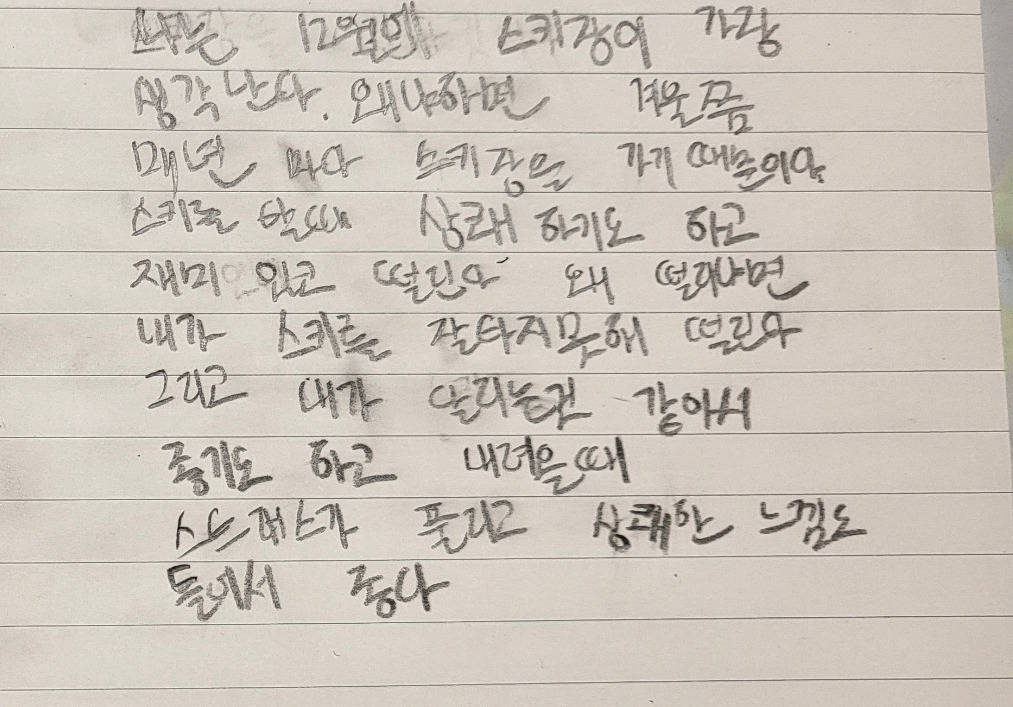 나는 12월에 스키장이 가장
생각 난다. 왜냐하면 겨울쯤
매년 마다 스키장을 가기 때문이야.
스키를 탈때 상쾌 하기도 하고
재미 있고 떨린다 왜 떨리냐면
내가 스키를 잘타지못해 떨린다
그리고 내가 달리는건 같아서
좋기도 하고 내려올때
스트레스가 풀리고 상쾌한 느낌도
들어서 좋다